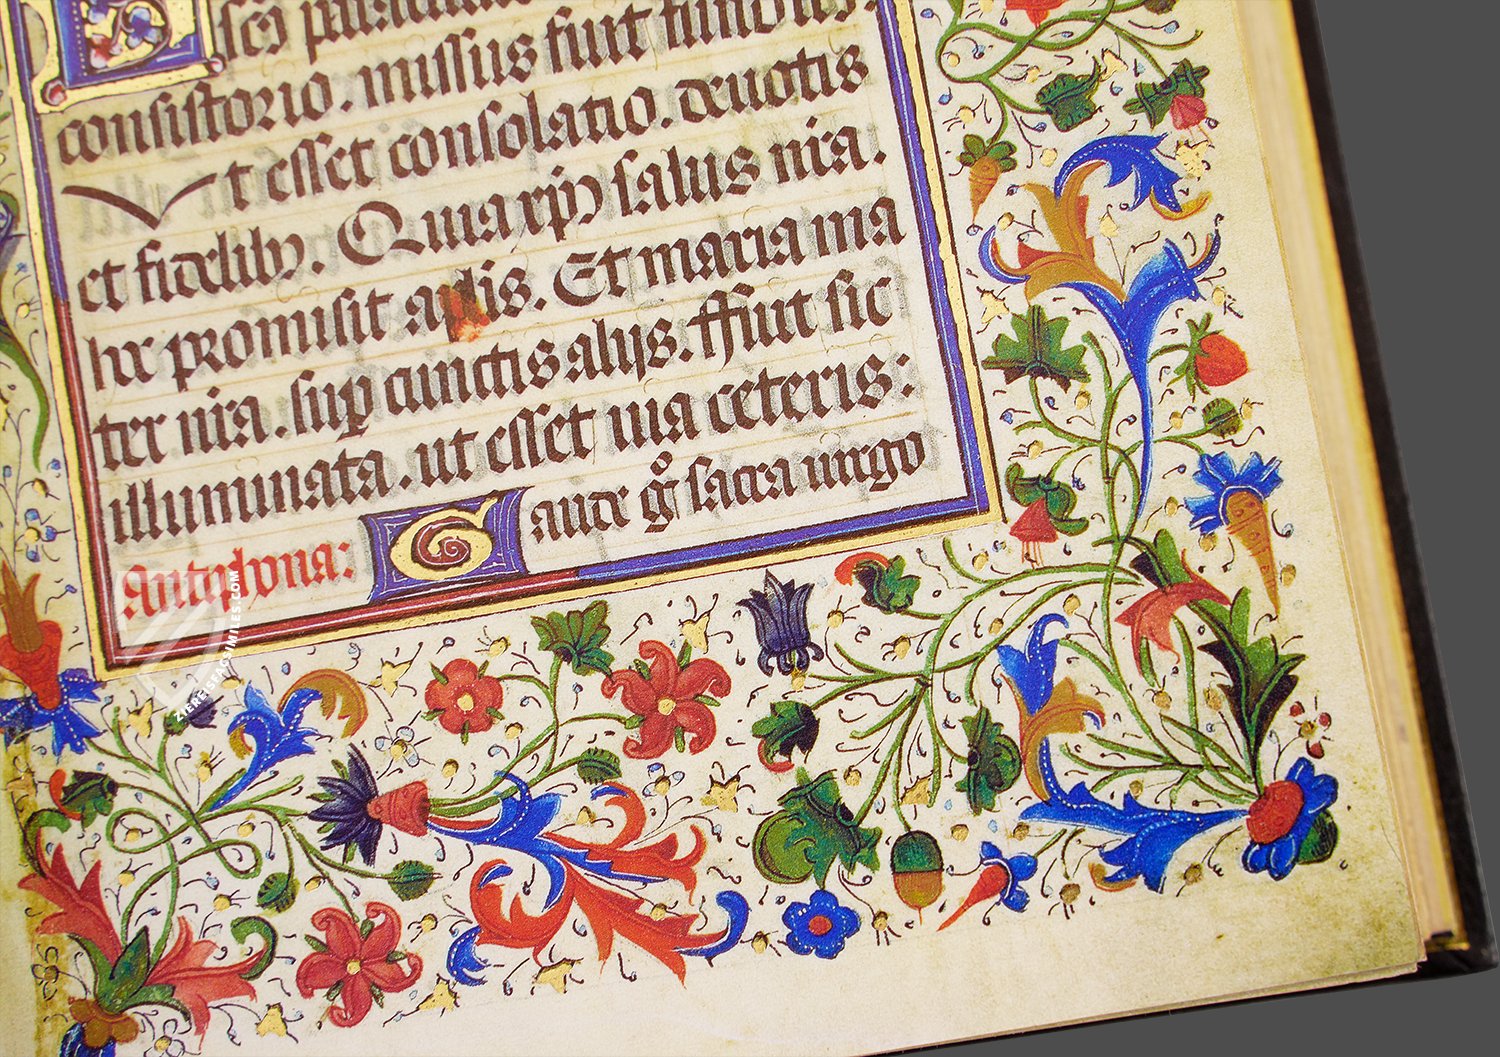 consistorio. missus fuit
Vt esset consolatio. deuotis
et fidelibꝫ. Quia xpc salus nr̄a.
hec promisit ap̄lis. Et maria ma
ter nr̄a. suꝑ cunctis alijs. ffuit sic
illuminata. ut esset uia ceteris:
Antiphona: Gaude g̊ sacra uirgo
ZIEREISFACSIMILES.COM